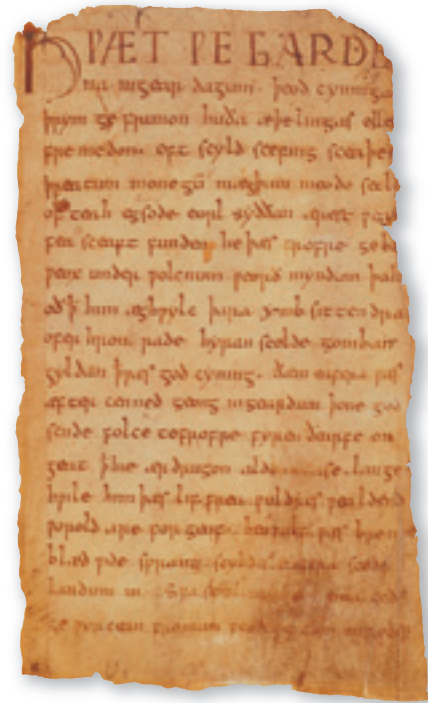 HǷÆT ǷE GARDE
na ingear dagum. þeod cyninga
þrym ge frunon huða æþelingas elle
fre medon. oft scyld scefing sceaþe
þreatum monegū mægþum meodo setl
of teah egsode eorl syððan ærest
fea sceaft funden he þæs frofre geb
ƿeox under ƿolcnum ƿeorð myndum þah
oð ꝥ him æghƿylc þara ymb sittendra
ofer hron rade hyran scolde gomban
gyldan ꝥ ƿæs god cyning. ðæm eafera ƿæs
æfter cenned geong ingeardum þone god
sende folce tofrofre fyren ðearfe on
geat ꝥ hie ær drugon lange
hƿile him þæs lif frea ƿuldres ƿealdend
ƿorold are for geaf. ƿæs brem
blæd ƿide sprang scyldes eafera scede
landum in. Sƿa
ge ƿyrcean fromum